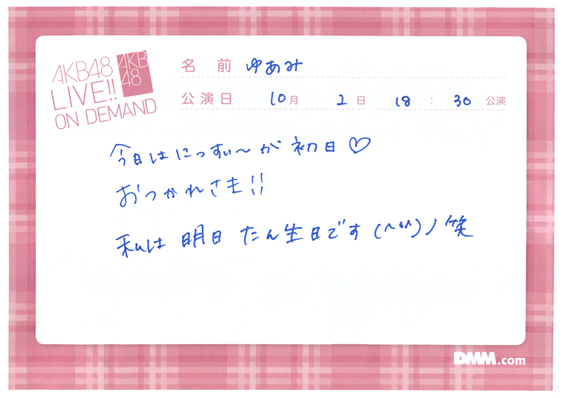 AKB48
LIVE!!
ON DEMAND
AKB
48
名前 ゆあみ
公演日 10月 2日 18:30 公演
今日はにっすぃ〜が初日♡
おつかれさま!!
私は明日たん生日です(^^)ノ笑
DMM.com